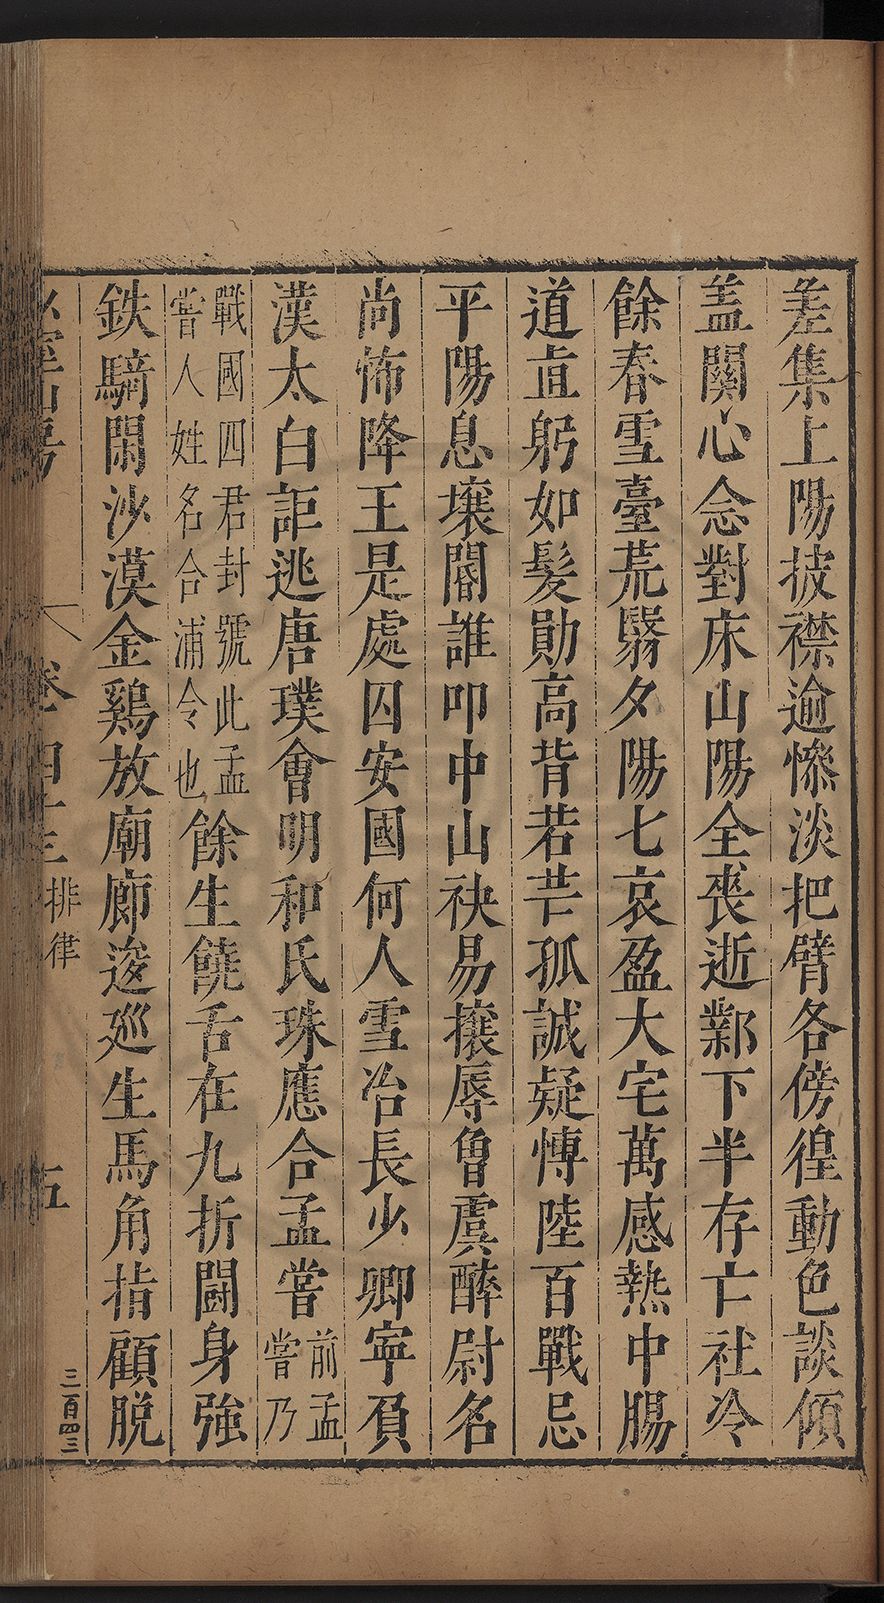 差集上陽披襟逾慘淡把臂各傍徨動色談傾
盖關心念對床山陽全喪逝鄴下半存亡社冷
餘春雪臺荒翳夕陽七哀盈大宅萬感熱中腸
道直躬如髮勛高背若芒孤誠疑慱陸百戰忌
平陽息壤閽誰叩中山袂易攘辱曾虞醉尉名
尚怖降王是處囚安國何人雪冶長少卿寧負
漢太白詎逃唐璞會明和氏珠應合孟嘗前孟嘗乃
戰國四君封號此孟嘗人姓名合浦令也餘生饒舌在九折鬪身強
鉄騎閑沙漠金鷄放廟廊逡廵生馬角指顧脱
房
卷四十三
排律
五
三百四三